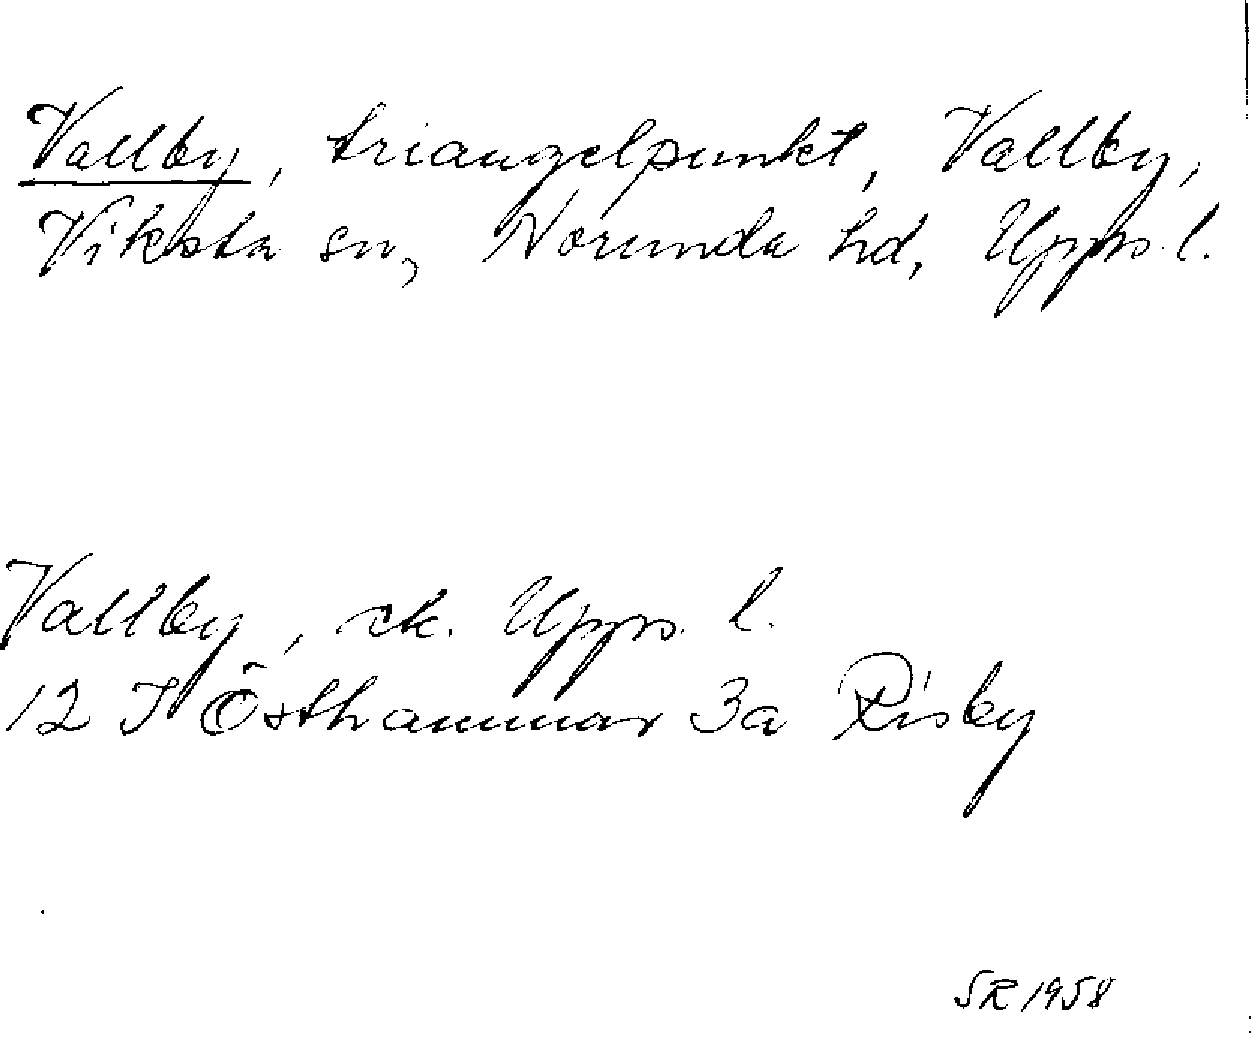 Vallby, triangelpunkt, Vallby,
Viksta sn, Norunda hd, Upps. l.
Vallby, rk. Upps. l.
12 I Östhammar 3a Risby
SR 1958